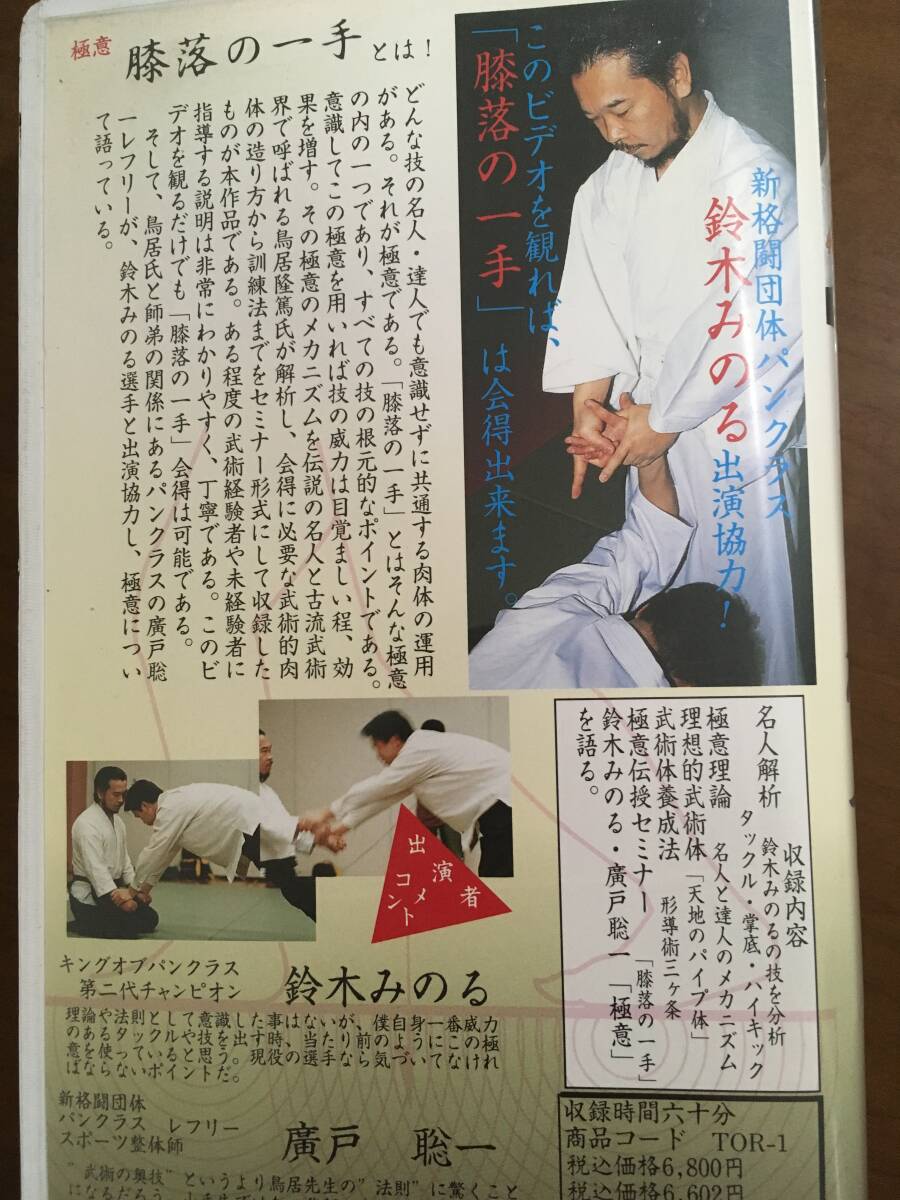 極意
膝落の一手とは！
どんな技の名人・達人でも意識せずに共通する肉体の運用
がある。それが極意である。「膝落の一手」とはそんな極意
の内の一つであり、すべての技の根元的なポイントである。
意識してこの極意を用いれば技の威力は目覚ましい程、効
果を増す。その極意のメカニズムを伝説の名人と古流武術
界で呼ばれる鳥居隆篤氏が解析し、会得に必要な武術的肉
体の造り方から訓練法までをセミナー形式にして収録した
ものが本作品である。ある程度の武術経験者や未経験者に
指導する説明は非常にわかりやすく、丁寧である。このビ
デオを観るだけでも「膝落の一手」会得は可能である。
そして、鳥居氏と師弟の関係にあるパンクラスの廣戸聡
一レフリーが、鈴木みのる選手と出演協力し、極意につい
て語っている。
新格闘団体パンクラス
鈴木みのる出演協力！
このビデオを観れば、
「膝落の一手」は会得出来ます。
収録内容
名人解析
鈴木みのるの技を分析
タックル・掌底・ハイキック
極意理論
名人と達人のメカニズム
理想的武術体「天地のパイプ体」
武術体養成法
形導術三ヶ条
極意伝授セミナー「膝落の一手」
鈴木みのる・廣戸聡一「極意」
を語る。
出演者
コメント
キングオブパンクラス
第二代チャンピオン
鈴木みのる
理論や法則として意識した事はないが、僕自身一番威力
のあるタックルや技を出す時、当たり前のようにこの極
意を使っていると思う。現役の選手なら気づいてなけれ
ばならないポイントだ。
新格闘団体
パンクラス　レフリー
スポーツ整体師
廣戸　聡一
"武術の奥技"というより鳥居先生の"法則"に驚くこと
になるだろう。
収録時間六十分
商品コード　TOR-1
税込価格6,800円
税込価格6,602円